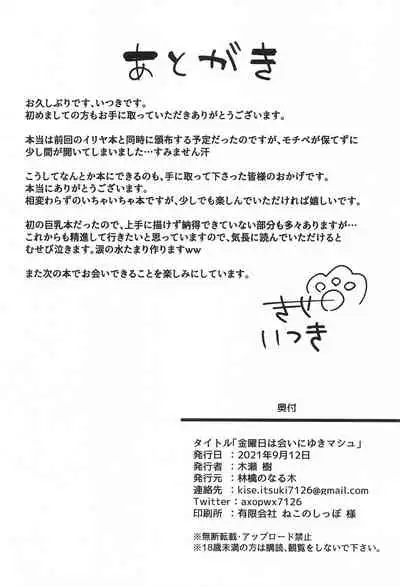 あとがき
お久しぶりです、いつきです。
初めましての方もお手に取っていただきありがとうございます。
本当は前回のイリヤ本と同時に頒布する予定だったのですが、モチベが保てずに
少し間が開いてしまいました…すみません汗
こうしてなんとか本にできるのも、手に取って下さった皆様のおかげです。
本当にありがとうございます。
相変わらずのいちゃいちゃ本ですが、少しでも楽しんでいただければ嬉しいです。
初の巨乳本だったので、上手に描けず納得できていない部分も多々ありますが…
これからも精進して行きたいと思っていますので、気長に読んでいただけると
むせび泣きます。涙の水たまり作りますww
また次の本でお会いできることを楽しみにしています。
いつき
奥付
タイトル「金曜日は会いにゆきマシュ」
発行日：2021年9月12日
発行者：木瀬 樹
発行元：林檎のなる木
連絡先：kise.itsuki7126@gmail.com
Twitter：axopwx7126
印刷所：有限会社 ねこのしっぽ 様
※無断転載・アップロード禁止
※18歳未満の方は購読、観覧をしないで下さい。